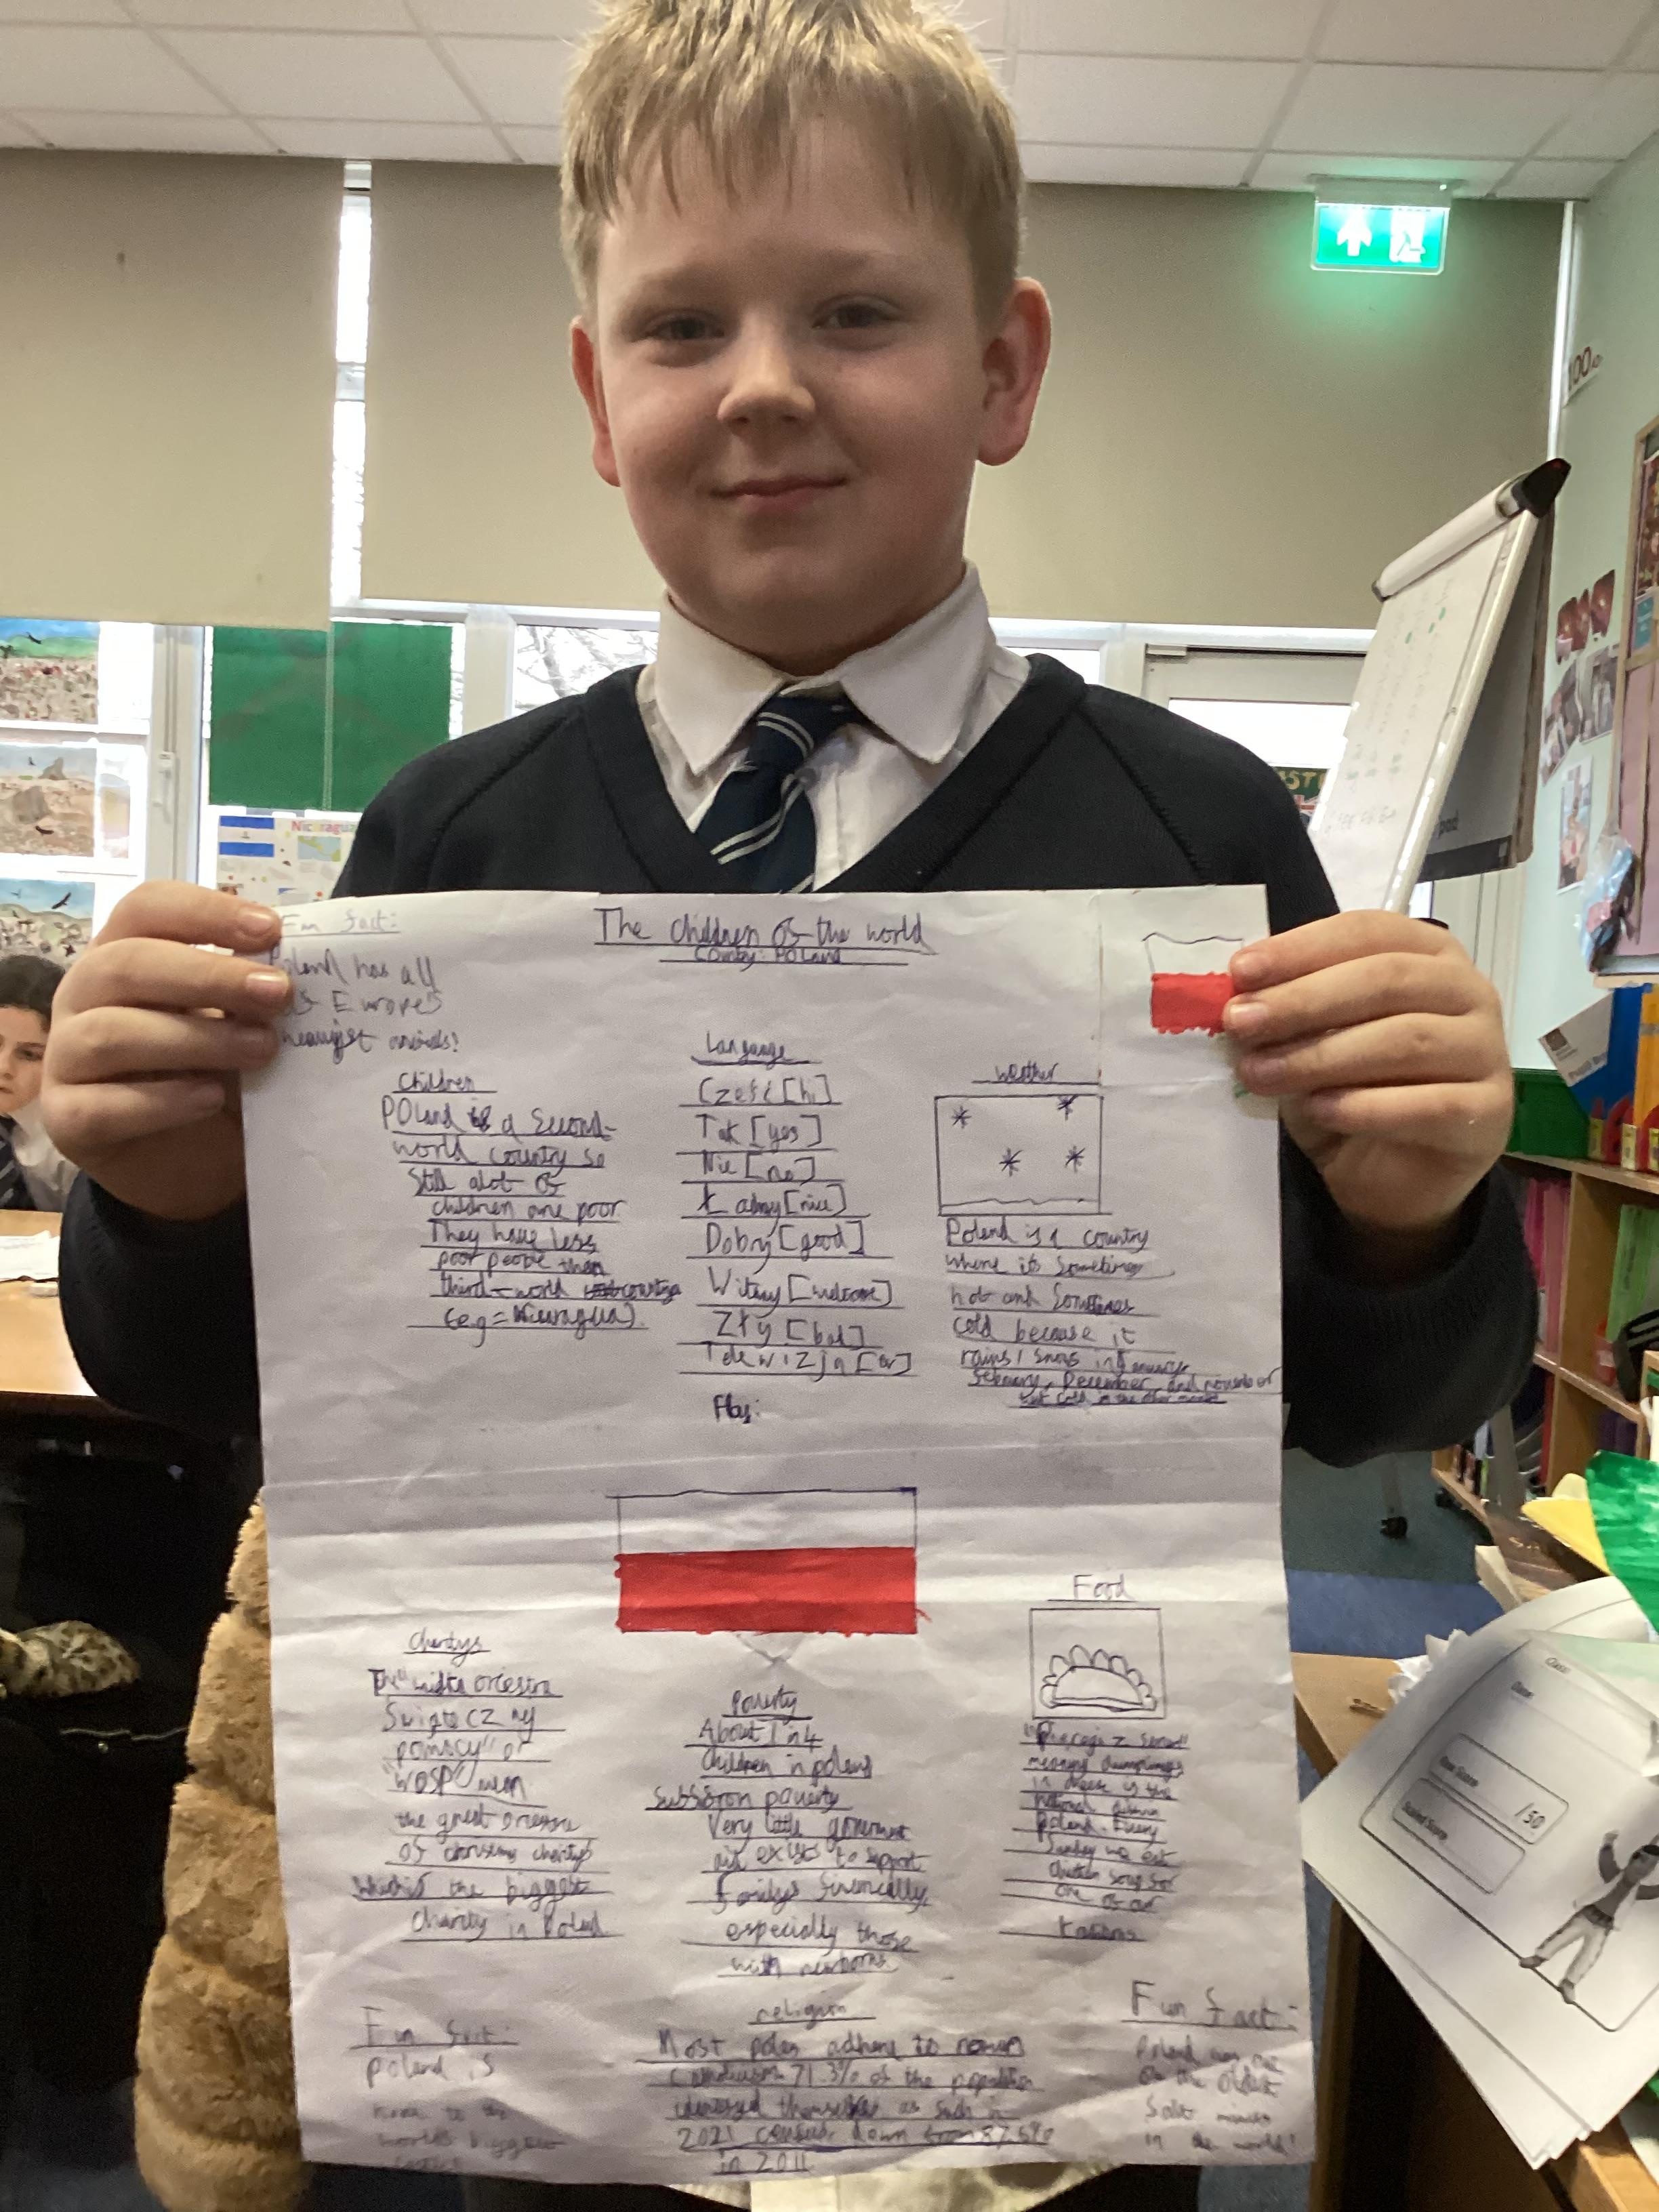 The Children of the world
County: Poland
Fun fact:
Poland has all
of Europes
heaviest
Children
Poland is a Second-
world country so
Still alot of
children are poor
They have less
poor people than
third-world
(e.g = Nicuragua).
Language
Cześć [hi]
Tak [yes]
Nie [no]
Ładny [nice]
Dobry [good]
Witmy [welcome]
Zły [bad]
Telewizja [tv]
Weather
Poland is a country
where its Sometimes
hot and Sometimes
cold because it
rains / snows in
February, December, and november
but cold in the other
Flag:
Charitys
The "
Swiąteczny
pomacy" or
"WOSP" mean
the great
of
Which is the biggest
charity in Poland
Poverty
About 1 in 4
Children in poland
poverty
Very little
aid exists to support
Familys financially,
especially those
with newborns
Food
meaning dumplings
in is the
national
Poland. Every
Sunday we eat
chicken soup for
one of our
Fun fact:
Poland is
home to the
worlds biggest
religion
Most poles adhere to roman
71.3% of the population
themselves as such in
2021 census, down from 87.5%
in 2011
Fun fact:
Poland has one
of the oldest
Salt mines
in the world!
Nicaragua
100%
/50